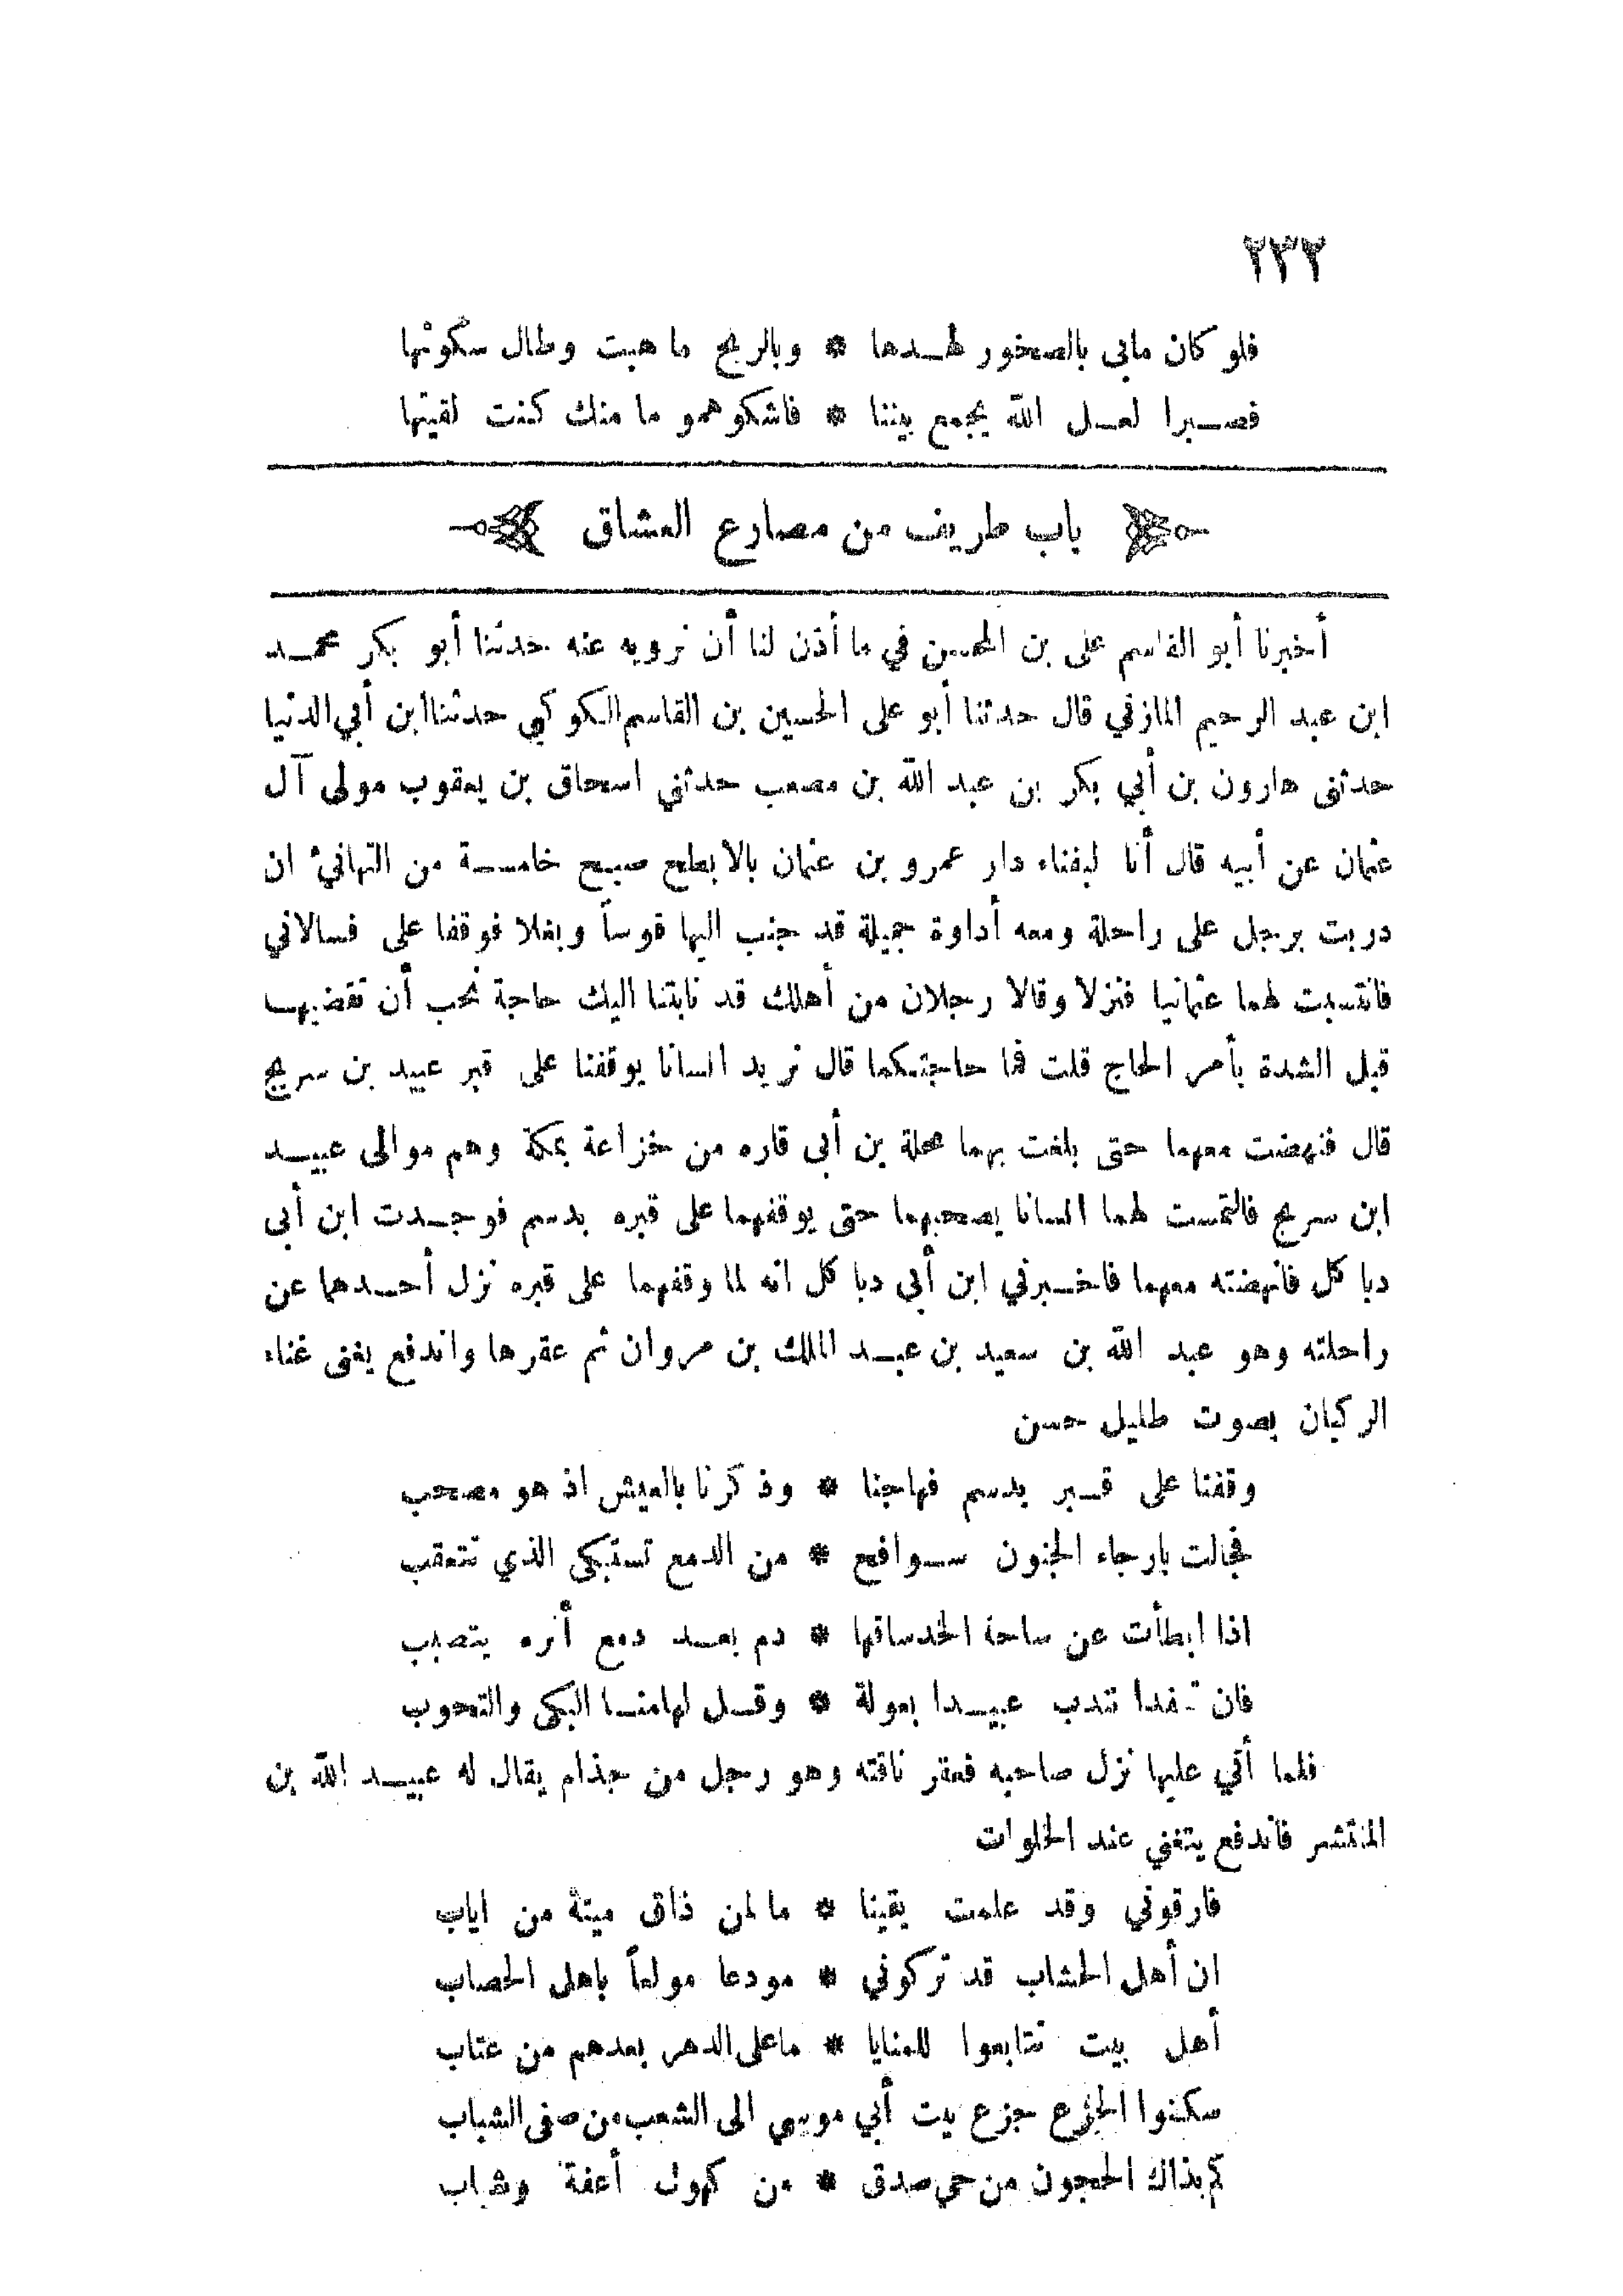 ٢٣٢
فلو كان مابى بالصخور لهــدها * وبالريح ما هبت وطال سكونها
فصــبرا لعــل الله يجمع بيننا * فاشكو همو ما منك كنت لقيتها
باب طريف من مصارع العشاق
أخبرنا أبو القاسم على بن المحسن في ما أذن لنا أن نرويه عنه حدثنا أبو بكر محمــد
ابن عبد الرحيم المازني قال حدثنا أبو على الحسين بن القاسم الكوكبي حدثنا ابن أبي الدنيا
حدثنى هارون بن أبي بكر بن عبد الله بن مصعب حدثني اسحاق بن يعقوب مولى آل
عثمان عن أبيه قال أنا لبفناء دار عمرو بن عثمان بالابطح صبح خامســة من التهانئ ان
دريت برجل على راحلة ومعه أداوة جميلة قد جنب اليها قوساً وبغلا فوقفا على فسالاني
فانتسبت لهما عثمانيا فنزلا وقالا رجلان من أهلك قد نابتنا اليك حاجة نحب أن تقضيهــا
قبل الشدة بأمر الحاج قلت فما حاجتكما قال نريد انسانا يوقفنا على قبر عبيد بن سريج
قال فنهضت معهما حتى بلغت بهما محلة بن أبى قاره من خزاعة بمكة وهم موالى عبيــد
ابن سريج فالتمست لهما انسانا يصحبهما حتى يوقفهما على قبره بدسم فوجــدت ابن أبى
دباكل فانهضته معهما فاخــبرني ابن أبى دباكل انه لما وقفهما على قبره نزل أحــدهما عن
راحلته وهو عبد الله بن سعيد بن عبــد الملك بن مروان ثم عقرها واندفع يغنى غناء
الركبان بصوت طليل حسن
وقفنا على قــبر بدسم فهاجنا * وذكرنا بالعيش اذ هو مصحب
فجالت بارجاء الجنون ســوافح * من الدمع تستبكى الذي تتعقب
اذا ابطأت عن ساحة الخدساقها * دم بعــد دمع أثره يتصبب
فان تنفدا تندب عبيــدا بعولة * وقــل لهامنــا البكى والتحوب
فلما أتي عليها نزل صاحبه فعقر ناقته وهو رجل من جذام يقال له عبيــد الله بن
المنتشر فاندفع يتغني عند الخلوات
فارقوني وقد علمت يقينا * مالمن ذاق ميتة من اياب
ان أهل الحشاب قد تركوني * مودعا مولعاً باهل الحصاب
أهل بيت تتابعوا للمنايا * ماعلى الدهر بعدهم من عتاب
سكنوا الجزع جزع بيت أبي موسى الى الشعب من صفى الشباب
كم بذاك الحجون من حى صدق * من كهول أعفة وشباب